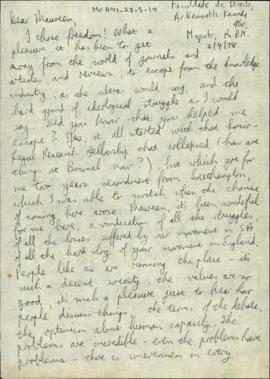 MCH91-27-5-19
Faculdade de Direito,
Av Kenneth Kaunda
960,
Maputo, R.P.M.
2/4/78
Dear Maureen,
I chose freedom! What a
pleasure it has been to get
away from the world of journals and
articles and reviews, to escape from the knowledge
industry, as the ultras would say, and the
hard grind of ideological struggle as I would
say. Did you know that you helped me
escape? Yes, it all started with that Socio-
Legal Research Fellowship that collapsed (how are
things at Brunel now?) but which got for
me two years secondment from Southampton,
which I was able to switch when the chance
of coming here arose. Maureen, it's been wonderful
for me here, a vindication of all the struggles,
of all the losses suffered by our movement in S.A.
of all the hard slog of your movement in England.
People like us are running the place - it's
such a decent society, the values are so
good, it's such a pleasure just to hear how
people discuss things, the terms of the debate,
the optimism about human capacity. The
problems are incredible - even the problems have
problems - there is unevenness in every